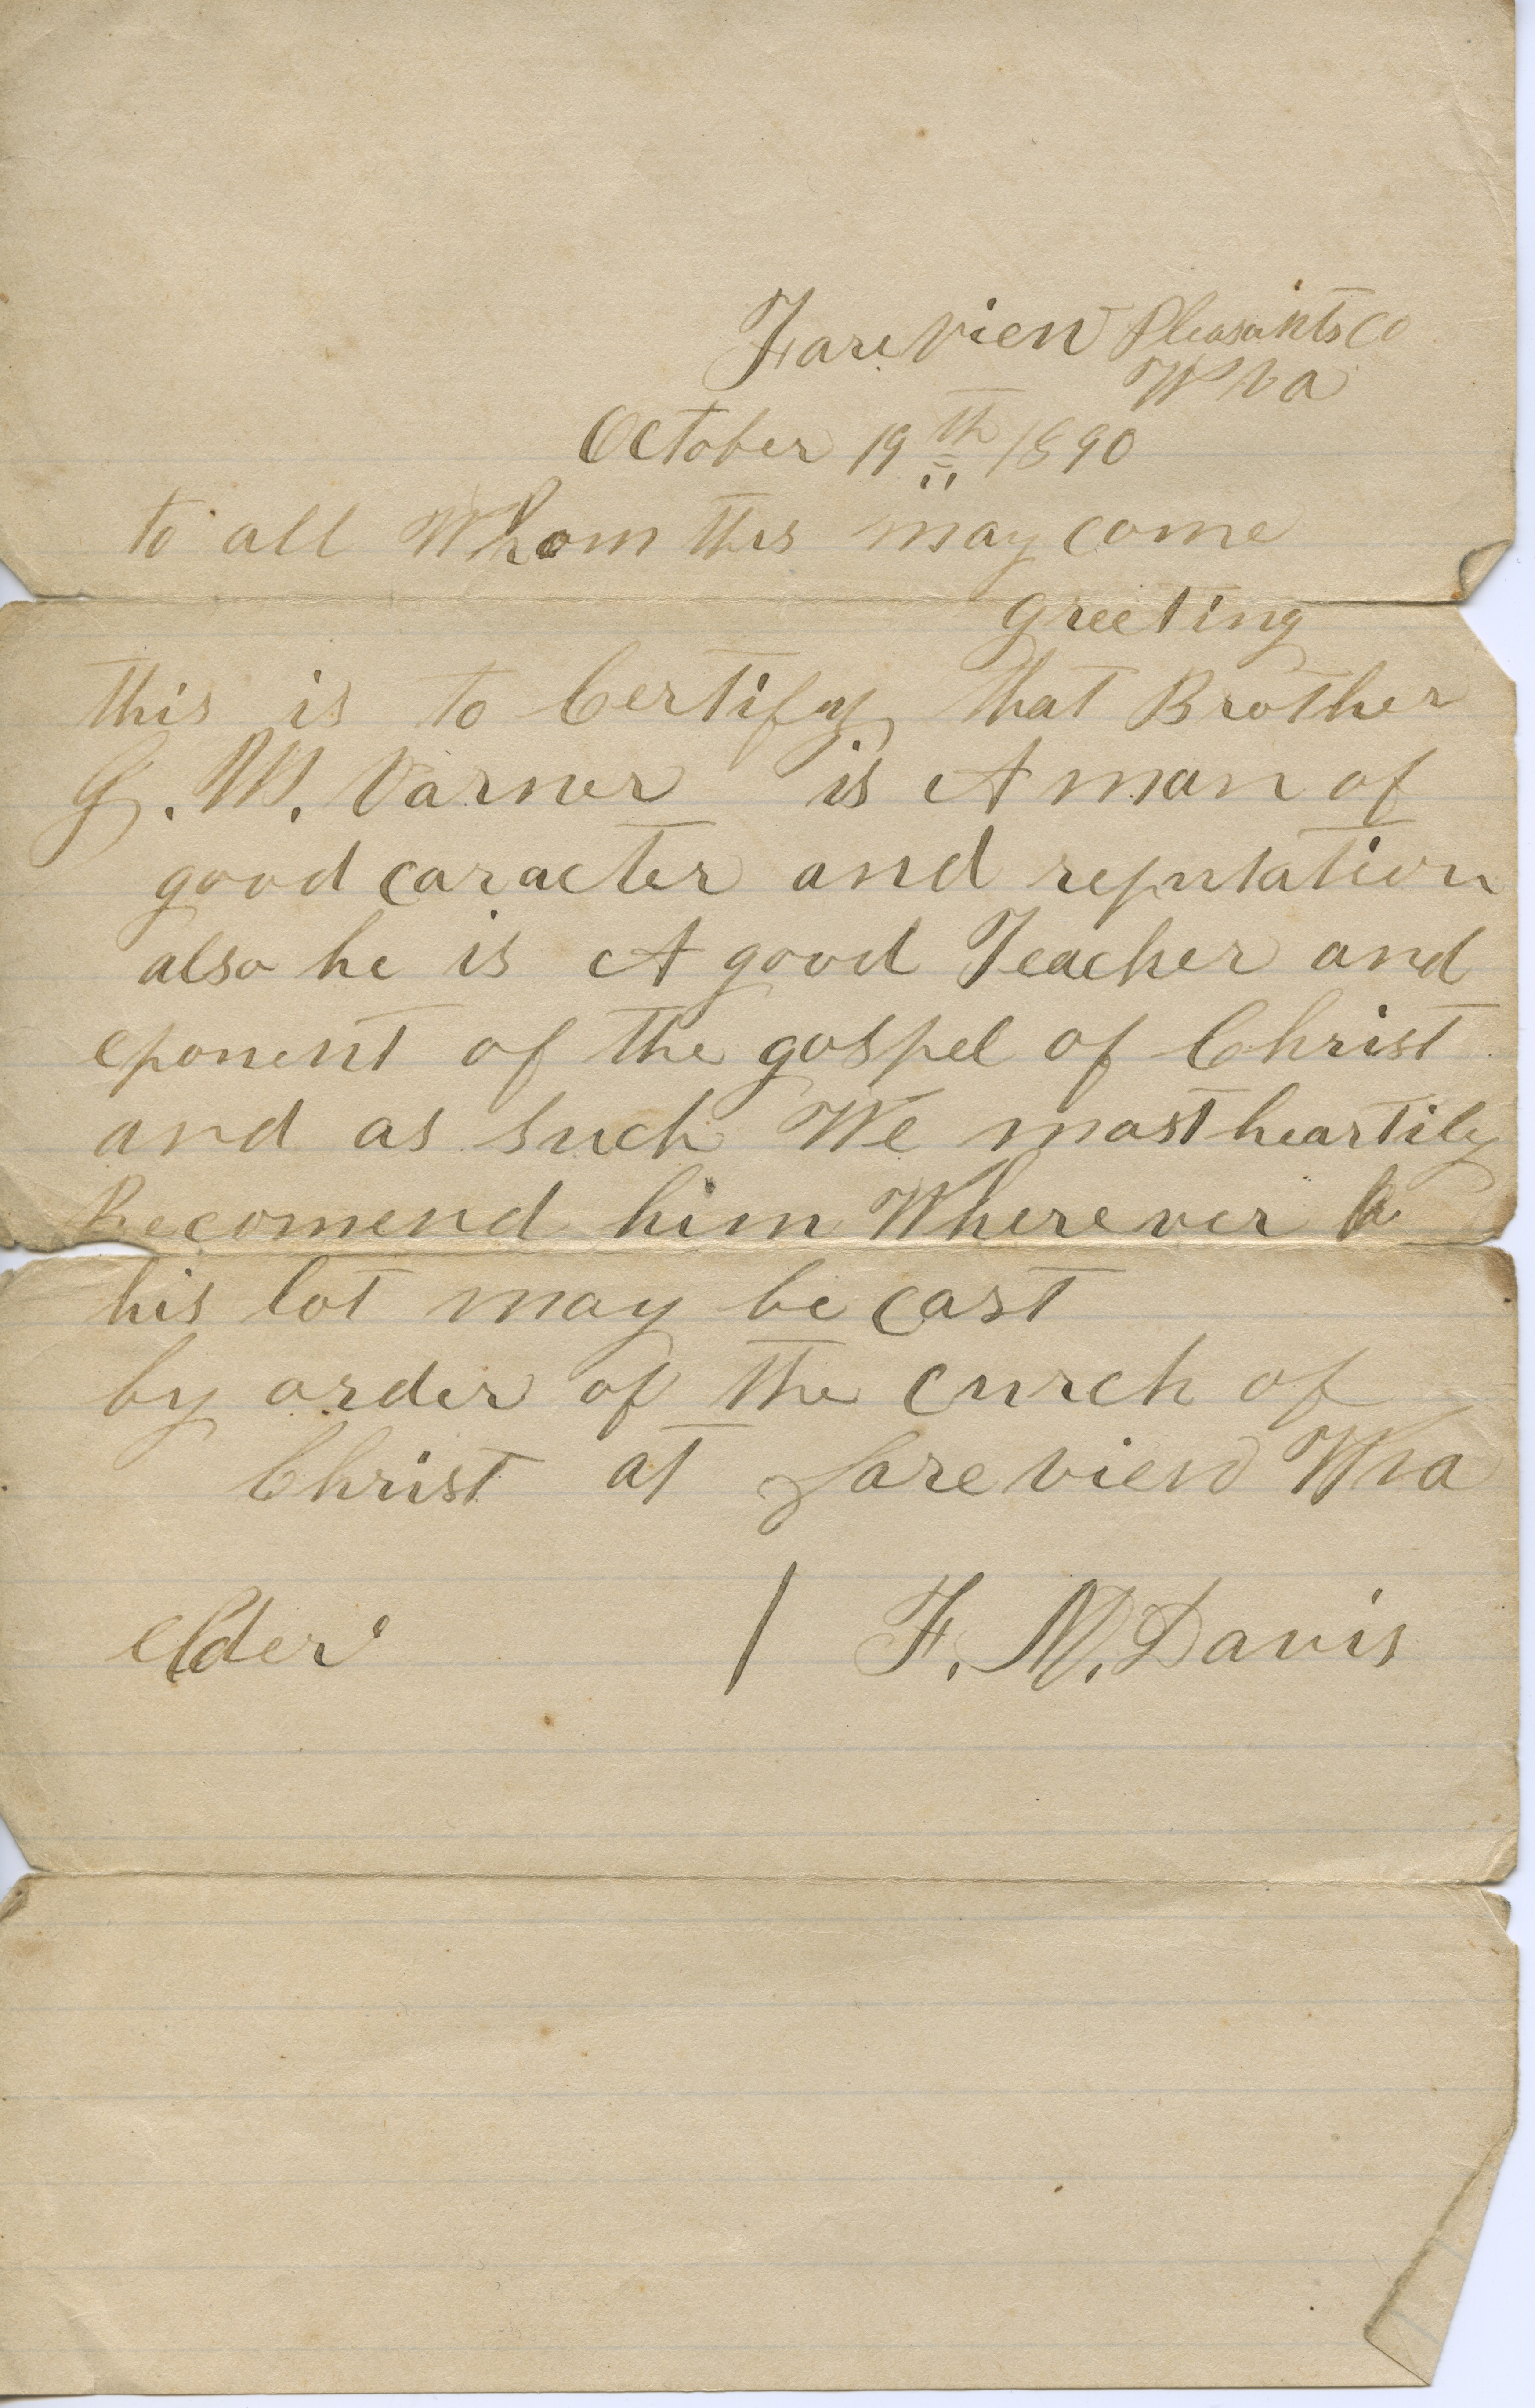 Fareview Pleasants Co
W Va
October 19th 1890
to all Whom this may come
greeting
this is to Certify that Brother
G. W. Varner is A man of
good caracter and reputation
also he is A good Teacher and
eponent of the gospel of Christ
and as such We most heartily
Recomend him Wherever
his lot may be cast
by order of the Curch of
Christ at fareview Wva
elder / F. M. Davis